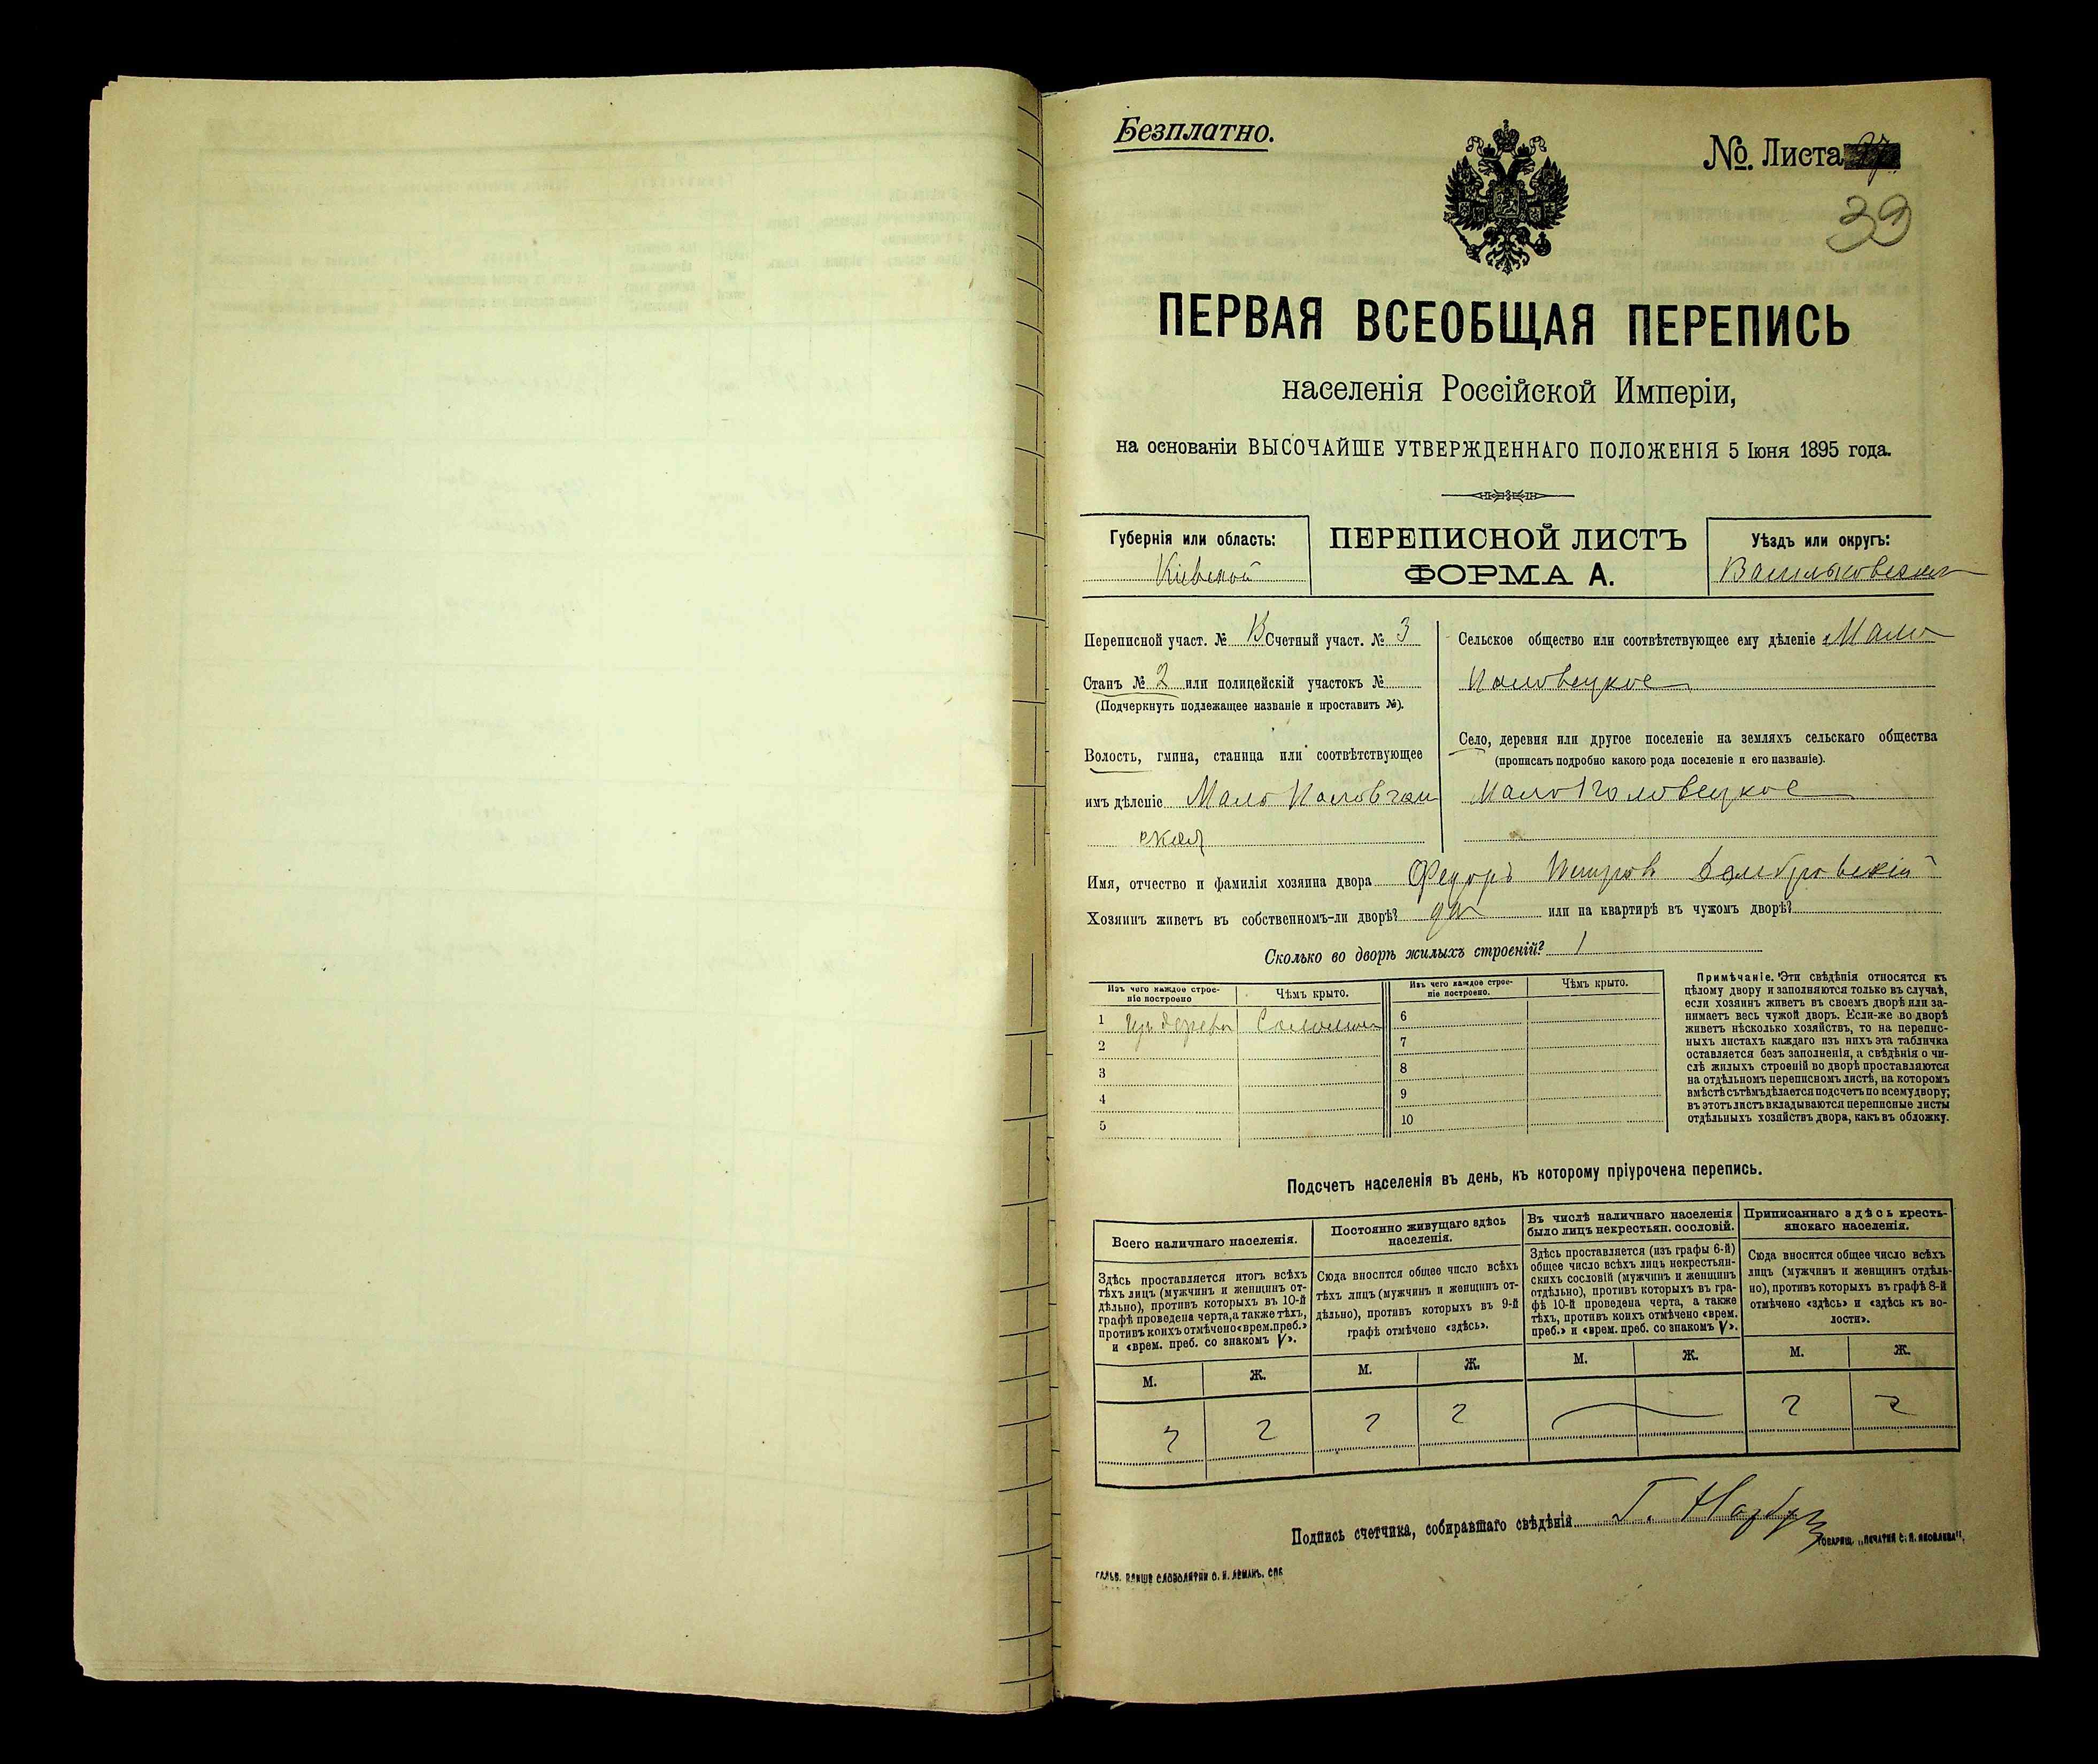 Безплатно.
№. Листа
39
ПЕРВАЯ ВСЕОБЩАЯ ПЕРЕПИСЬ
населенія Россійской Имперіи,
на основаніи ВЫСОЧАЙШЕ УТВЕРЖДЕННАГО ПОЛОЖЕНІЯ 5 Іюня 1895 года.
Губернія или область:
Кіевской
ПЕРЕПИСНОЙ ЛИСТЪ
ФОРМА А.
Уѣздъ или округъ:
Васильковскій
Переписной участ. № 13 Счетный участ. № 3
Станъ № 2 или полицейскій участокъ №
(Подчеркнуть подлежащее названіе и проставить №).
Волость, гмина, станица или соотвѣтствующее
имъ дѣленіе Мало Половчан
ская
Сельское общество или соотвѣтствующее ему дѣленіе Мало
Половецкое
Село, деревня или другое поселеніе на земляхъ сельскаго общества
(прописать подробно какого рода поселеніе и его названіе).
Мало Половецкое
Имя, отчество и фамилія хозяина двора Федоръ Петровъ Домбровскій
Хозяинъ живетъ въ собственномъ-ли дворѣ? да или на квартирѣ въ чужомъ дворѣ?
Сколько во дворѣ жилыхъ строеній? 1
Изъ чего каждое строе-
ніе построено
Чѣмъ крыто.
Изъ чего каждое строе-
ніе построено.
Чѣмъ крыто.
1 Изъ дерева Соломою
2
3
4
5
6
7
8
9
10
Примѣчаніе. Эти свѣдѣнія относятся къ
цѣлому двору и заполняются только въ случаѣ,
если хозяинъ живетъ въ своемъ дворѣ или за-
нимаетъ весь чужой дворъ. Если-же во дворѣ
живетъ нѣсколько хозяйствъ, то на перепис-
ныхъ листахъ каждаго изъ нихъ эта табличка
оставляется безъ заполненія, а свѣдѣнія о чи-
слѣ жилыхъ строеній во дворѣ проставляются
на отдѣльномъ переписномъ листѣ, на которомъ
вмѣстѣ съ тѣмъ дѣлается подсчетъ по всему двору;
въ этотъ листъ вкладываются переписные листы
отдѣльныхъ хозяйствъ двора, какъ въ обложку.
Подсчетъ населенія въ день, къ которому пріурочена перепись.
Всего наличнаго населенія.
Здѣсь проставляется итогъ всѣхъ
тѣхъ лицъ (мужчинъ и женщинъ от-
дѣльно), противъ которыхъ въ 10-й
графѣ проведена черта, а также тѣхъ,
противъ коихъ отмѣчено «врем. преб.»
и «врем. преб. со знакомъ V».
Постоянно живущаго здѣсь
населенія.
Сюда вносится общее число всѣхъ
тѣхъ лицъ (мужчинъ и женщинъ от-
дѣльно), противъ которыхъ въ 9-й
графѣ отмѣчено «здѣсь».
Въ числѣ наличнаго населенія
было лицъ некрестьян. сословій.
Здѣсь проставляется (изъ графы 6-й)
общее число всѣхъ лицъ некрестьян-
скихъ сословій (мужчинъ и женщинъ
отдѣльно), противъ которыхъ въ гра-
фѣ 10-й проведена черта, а также
тѣхъ, противъ коихъ отмѣчено «врем.
преб.» и «врем. преб. со знакомъ V».
Приписаннаго здѣсь кресть-
янскаго населенія.
Сюда вносится общее число всѣхъ
лицъ (мужчинъ и женщинъ отдѣль-
но), противъ которыхъ въ графѣ 8-й
отмѣчено «здѣсь» и «здѣсь къ во-
лости».
М. Ж. М. Ж. М. Ж. М. Ж.
2 2 2 2 2 2
Подпись счетчика, собиравшаго свѣдѣнія Г.
ТОВАРИЩ. „ПЕЧАТНЯ С. П. ЯКОВЛЕВА".
ГАЛЬВ. КЛИШЕ СЛОВОЛИТНИ О. И. ЛЕМАНЪ. СПБ